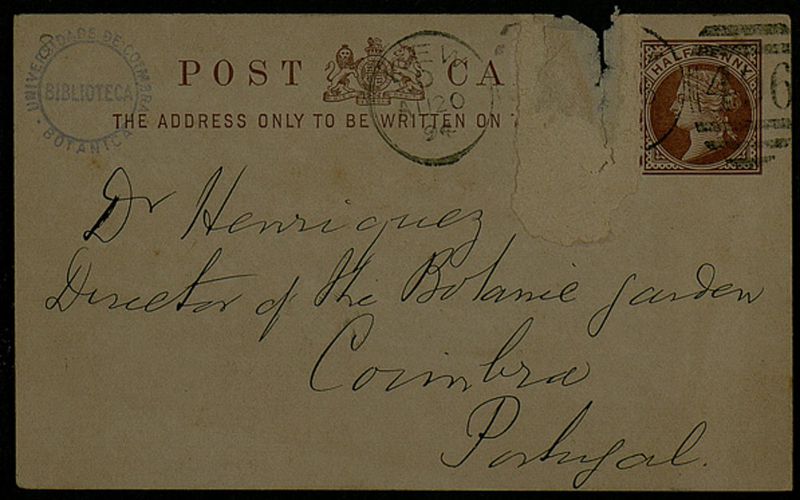 UNIVERSIDADE DE COIMBRA
BIBLIOTECA
BOTANICA
POST CA
THE ADDRESS ONLY TO BE WRITTEN ON
20
94
HALFPENNY
46
Dr Henriquez
Director of the Botanic garden
Coimbra
Portugal.